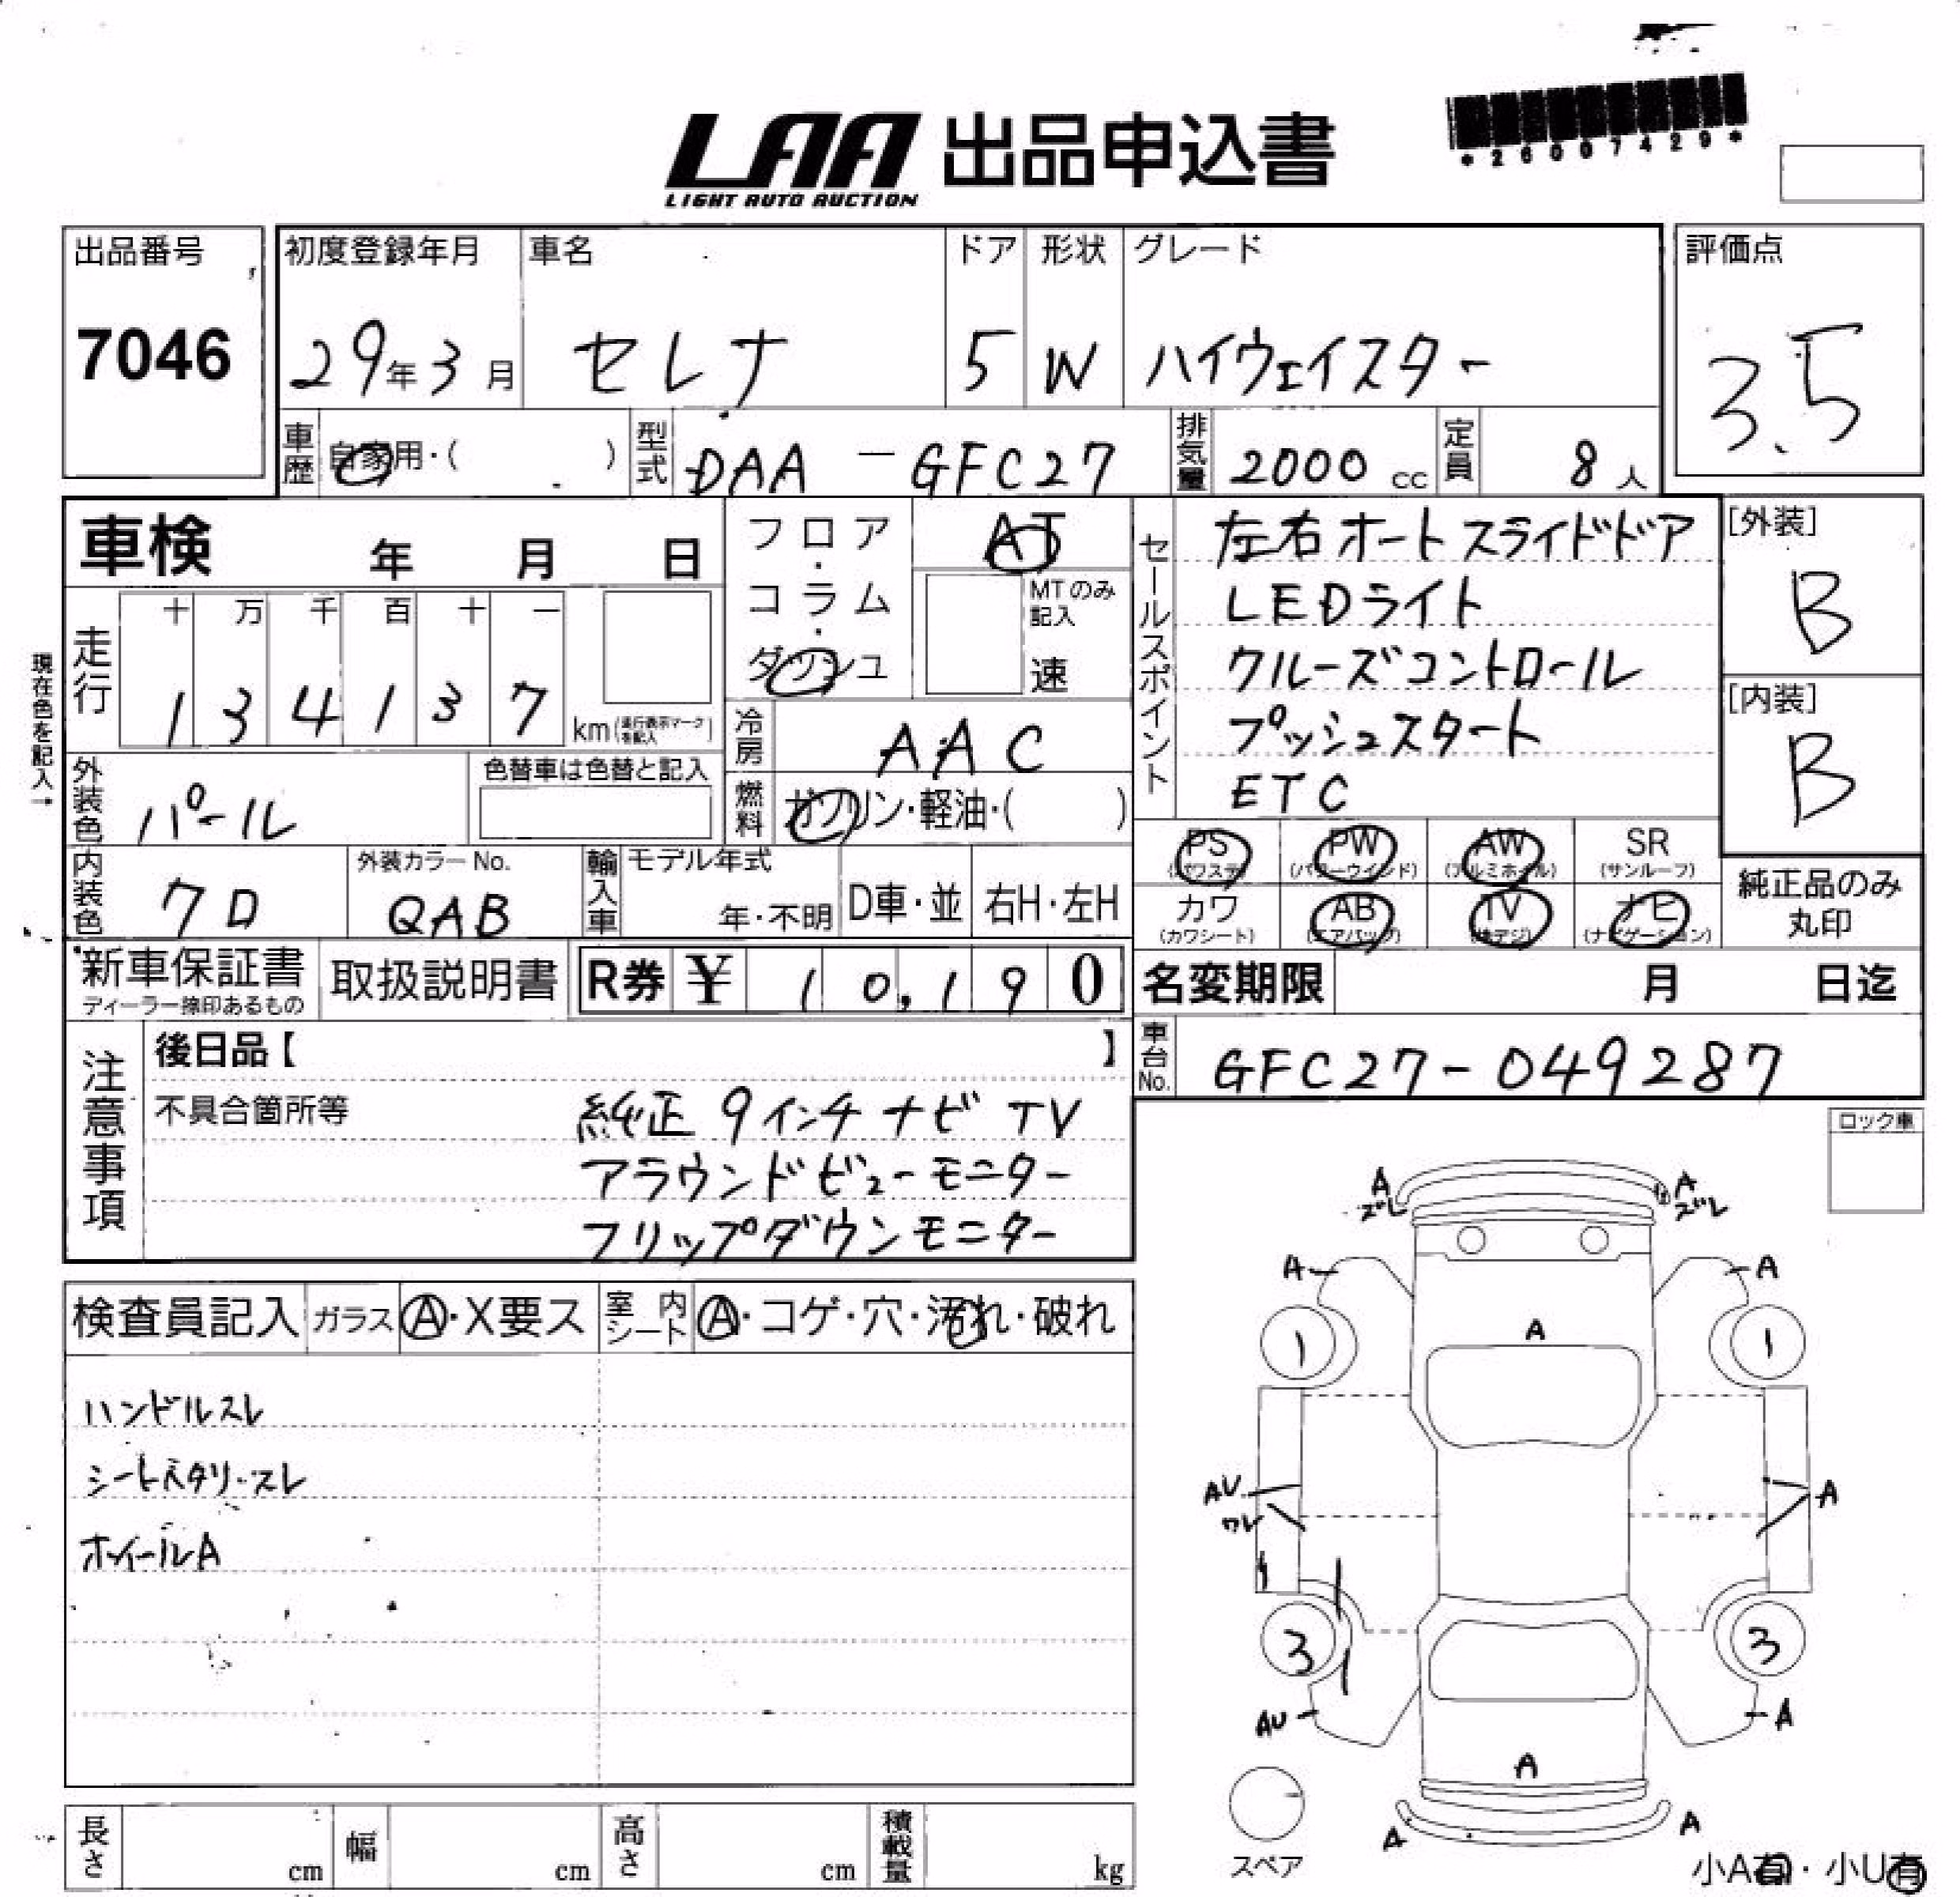 LAA 出品申込書
LIGHT AUTO AUCTION
*26007429*
出品番号
7046
初度登録年月
29年3月
車名
セレナ
ドア
5
形状
W
グレード
ハイウェイスター
評価点
3.5
車歴
自家用・( )
型式
DAA-GFC27
排気量
2000 cc
定員
8人
車検 年 月 日
フロア・コラム・ダッシュ
AT
MTのみ記入
速
セールスポイント
左右オートスライドドア
LEDライト
クルーズコントロール
プッシュスタート
ETC
[外装]
B
[内装]
B
現在色を記入→
走行
十 万 千 百 十 一
1 3 4 1 3 7 km(走行表示マークを記入)
冷房
AAC
外装色
パール
色替車は色替と記入
燃料
ガソリン・軽油・( )
PS (パワステ)
PW (パワーウインド)
AW (アルミホイル)
SR (サンルーフ)
カワ (カワシート)
AB (エアバッグ)
TV (地デジ)
ナビ (ナビゲーション)
純正品のみ
丸印
内装色
外装カラーNo.
QAB
輸入車
モデル年式
年・不明
D車・並
右H・左H
新車保証書
ディーラー捺印あるもの
取扱説明書
R券 ¥ 10,190
名変期限 月 日迄
車台No.
GFC27-049287
注意事項
後日品【 】
不具合箇所等
純正 9インチ ナビ TV
アラウンドビューモニター
フリップダウンモニター
ロック車
検査員記入
ガラス
A・X要ス
室内シート
A・コゲ・穴・汚れ・破れ
ハンドルスレ
シートヘタリ・スレ
ホイールA
A
ズレ
A
ズレ
A
A
1
A
1
AV
ワレ
A
3
3
AU
A
A
A
A
スペア
小A有・小U有
長さ cm
幅 cm
高さ cm
積載量 kg